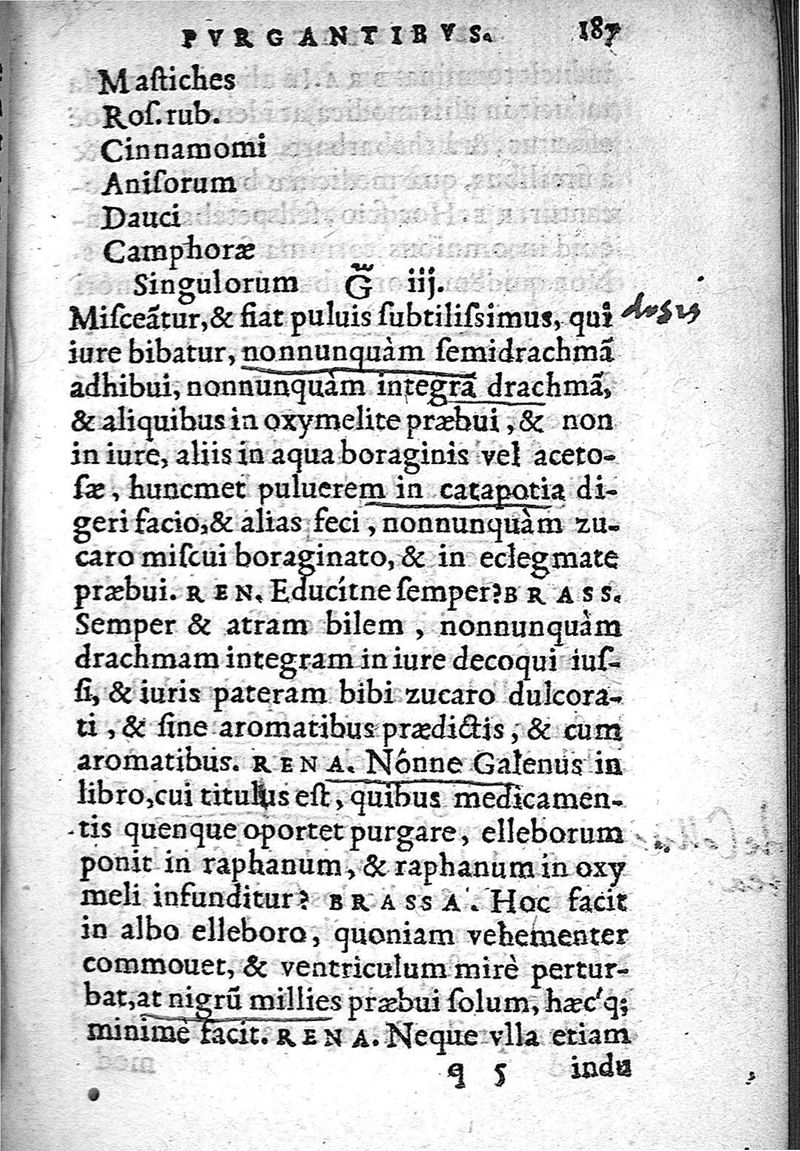 PVRGANTIBVS. 187
Maſtiches
Roſ. rub.
Cinnamomi
Aniſorum
Dauci
Camphoræ
Singulorum G̃ iij.
Miſceãtur, & fiat puluis ſubtiliſsimus, qui
dosis
iure bibatur, nonnunquàm ſemidrachmã
adhibui, nonnunquàm integrã drachmã,
& aliquibus in oxymelite præbui, & non
in iure, aliis in aqua boraginis vel aceto-
ſæ, huncmet puluerem in catapotia di-
geri facio, & alias feci, nonnunquàm zu-
caro miſcui boraginato, & in eclegmate
præbui. REN. Educítne ſemper? BRASS.
Semper & atram bilem, nonnunquàm
drachmam integram in iure decoqui iuſ-
ſi, & iuris pateram bibi zucaro dulcora-
ti, & ſine aromatibus prædictis, & cum
aromatibus. RENA. Nónne Galenus in
libro, cui titulus eſt, quibus medicamen-
tis quenque oportet purgare, elleborum
ponit in raphanum, & raphanum in oxy
meli infunditur? BRASSA. Hoc facit
in albo elleboro, quoniam vehementer
commouet, & ventriculum mirè pertur-
bat, at nigrũ millies præbui ſolum, hæc q;
minimè facit. RENA. Neque vlla etiam
q 5 indu